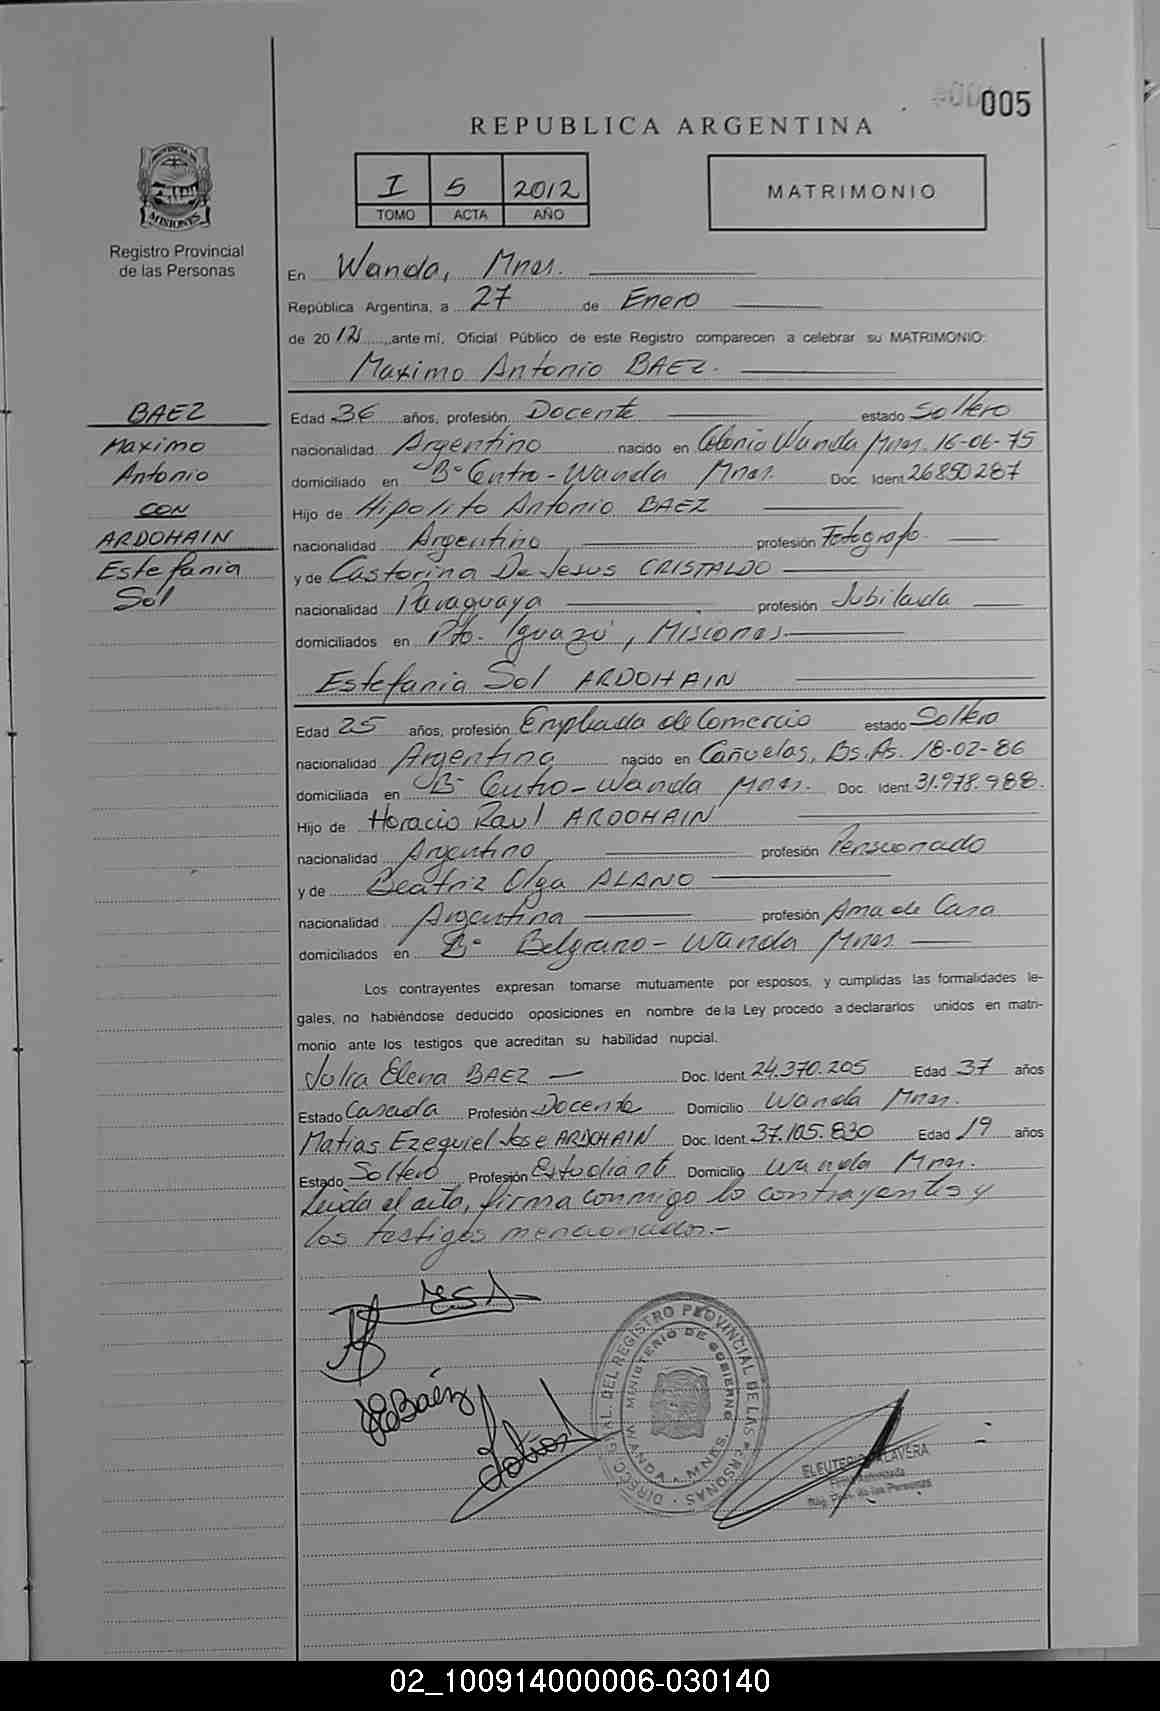 005
REPUBLICA ARGENTINA
I 5 2012
TOMO ACTA AÑO
MATRIMONIO
PROVINCIA DE
MISIONES
Registro Provincial
de las Personas
En Wanda, Mnes.
República Argentina, a 27 de Enero
de 2012, ante mí, Oficial Público de este Registro comparecen a celebrar su MATRIMONIO:
Maximo Antonio BAEZ.
BAEZ
Maximo
Antonio
CON
ARDOHAIN
Estefania
Sol
Edad 36 años, profesión Docente estado Soltero
nacionalidad Argentino nacido en Colonia Wanda Mnes. 16-06-75
domiciliado en B° Centro - Wanda Mnes. Doc. Ident 26850287
Hijo de Hipolito Antonio BAEZ
nacionalidad Argentino profesión Fotografo.
y de Castorina De Jesus CRISTALDO
nacionalidad Paraguaya profesión Jubilada
domiciliados en Pto. Iguazú, Misiones.
Estefania Sol ARDOHAIN
Edad 25 años, profesión Empleada de Comercio estado Soltera
nacionalidad Argentina nacido en Cañuelas, Bs. As. 18-02-86
domiciliada en B° Centro - Wanda Mnes. Doc. Ident. 31.978.988.
Hijo de Horacio Raul ARDOHAIN
nacionalidad Argentino profesión Pensionado
y de Beatriz Olga ALANO
nacionalidad Argentina profesión Ama de Casa
domiciliados en B° Belgrano - Wanda Mnes
Los contrayentes expresan tomarse mutuamente por esposos, y cumplidas las formalidades le-
gales, no habiéndose deducido oposiciones en nombre de la Ley procedo a declararlos unidos en matri-
monio ante los testigos que acreditan su habilidad nupcial.
Julia Elena BAEZ — Doc. Ident. 24.370.205 Edad 37 años
Estado Casada Profesión Docente Domicilio Wanda Mnes.
Matias Ezequiel Jose ARDOHAIN Doc. Ident. 37.105.830 Edad 19 años
Estado Soltero Profesión Estudiante Domicilio Wanda Mnes.
Leida el acta, firma conmigo lo contrayentes y
los testigos mencionados.-
ESA
JEBaéz
DIRECC. GRAL. DEL REGISTRO PROVINCIAL DE LAS PERSONAS
MINISTERIO DE GOBIERNO
WANDA - MNES.
ELEUTERIO TALAVERA
Firma Autorizada
Reg. Prov. de las Personas
02_100914000006-030140